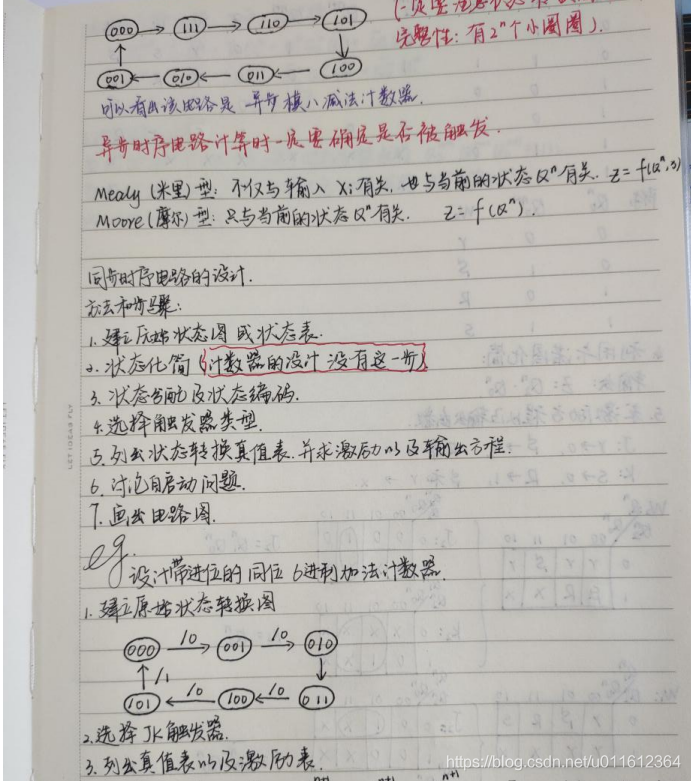 000 → 111 → 110 → 101
完整性：有2ⁿ个小圈圈）.
001 ← 010 ← 011 ← 100
可以看出该电路是 异步模八减法计数器.
异步时序电路计算时一定要确定是否被触发.
Mealy (米里)型：不仅与输入 Xi有关，也与当前的状态Qⁿ有关. Z=f(Qⁿ,
Moore (摩尔)型：只与当前的状态Qⁿ有关. Z=f(Qⁿ).
同步时序电路的设计.
方法和步骤:
1. 建立原始状态图或状态表.
2. 状态化简 (计数器的设计没有这一步)
3. 状态分配及状态编码.
4. 选择触发器类型.
5. 列出状态转换真值表.并求激励以及输出方程.
6. 讨论自启动问题.
7. 画出电路图.
eg.
设计带进位的同位6进制加法计数器.
1. 建立原始状态转换图
000 /0→ 001 /0→ 010
↑/1 ↓
101 ←/0 100 ←/0 011
2. 选择JK触发器.
3. 列出真值表以及激励表.
n+1 n+1
LET IDEAS FLY
https://blog.csdn.net/u011612364